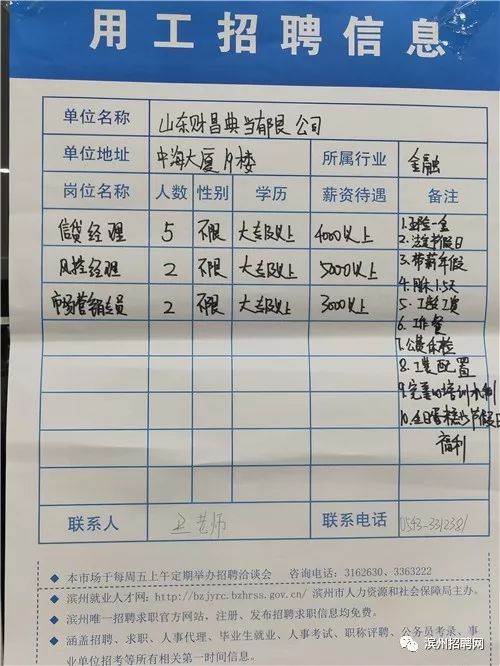 用工招聘信息
单位名称 山东财昌典当有限公司
单位地址 中海大厦19楼 所属行业 金融
岗位名称 人数 性别 学历 薪资待遇 备注
信贷经理 5 不限 大专及以上 4000以上
风控经理 2 不限 大专及以上 5000以上
市场营销专员 2 不限 大专及以上 3000以上
1.五险一金
2.法定节假日
3.带薪年假
4.月休1.5天
5.工龄工资
6.工作餐
7.公费体检
8.工装配置
9.完善的培训机制
10.生日蛋糕与节假日
福利
联系人 王老师 联系电话 0543-3312381
◆ 本市场于每周五上午定期举办招聘洽谈会 咨询电话:3162630、3363222
◆ 滨州就业人才网:http://bzjyrc.bzhrss.gov.cn/ 滨州市人力资源和社会保障局主办。
◆ 滨州唯一招聘求职官方网站,注册、发布招聘求职信息均免费。
◆ 涵盖招聘、求职、人事代理、毕业生就业、人事考试、职称评聘、公务员考录、事
业单位招考等所有相关第一时间信息。
滨州招聘网